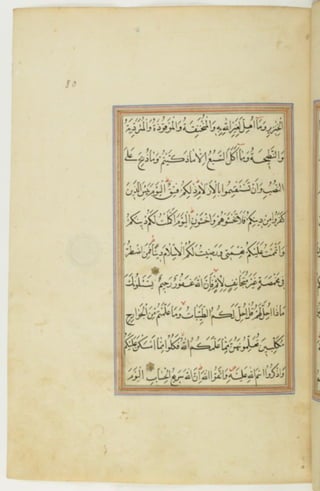 80
الخنزير وما أهل لغير الله به والمنخنقة والموقوذة والمتردية
والنطيحة وما أكل السبع إلا ما ذكيتم وما ذبح على
النصب وأن تستقسموا بالأزلام ذلكم فسق اليوم يئس الذين
كفروا من دينكم فلا تخشوهم واخشون اليوم أكملت لكم دينكم
وأتممت عليكم نعمتي ورضيت لكم الإسلام دينا فمن اضطر
في مخمصة غير متجانف لإثم فإن الله غفور رحيم يسئلونك
ماذا أحل لهم قل أحل لكم الطيبات وما علمتم من الجوارح
مكلبين تعلمونهن مما علمكم الله فكلوا مما أمسكن عليكم
واذكروا اسم الله عليه واتقوا الله إن الله سريع الحساب اليوم